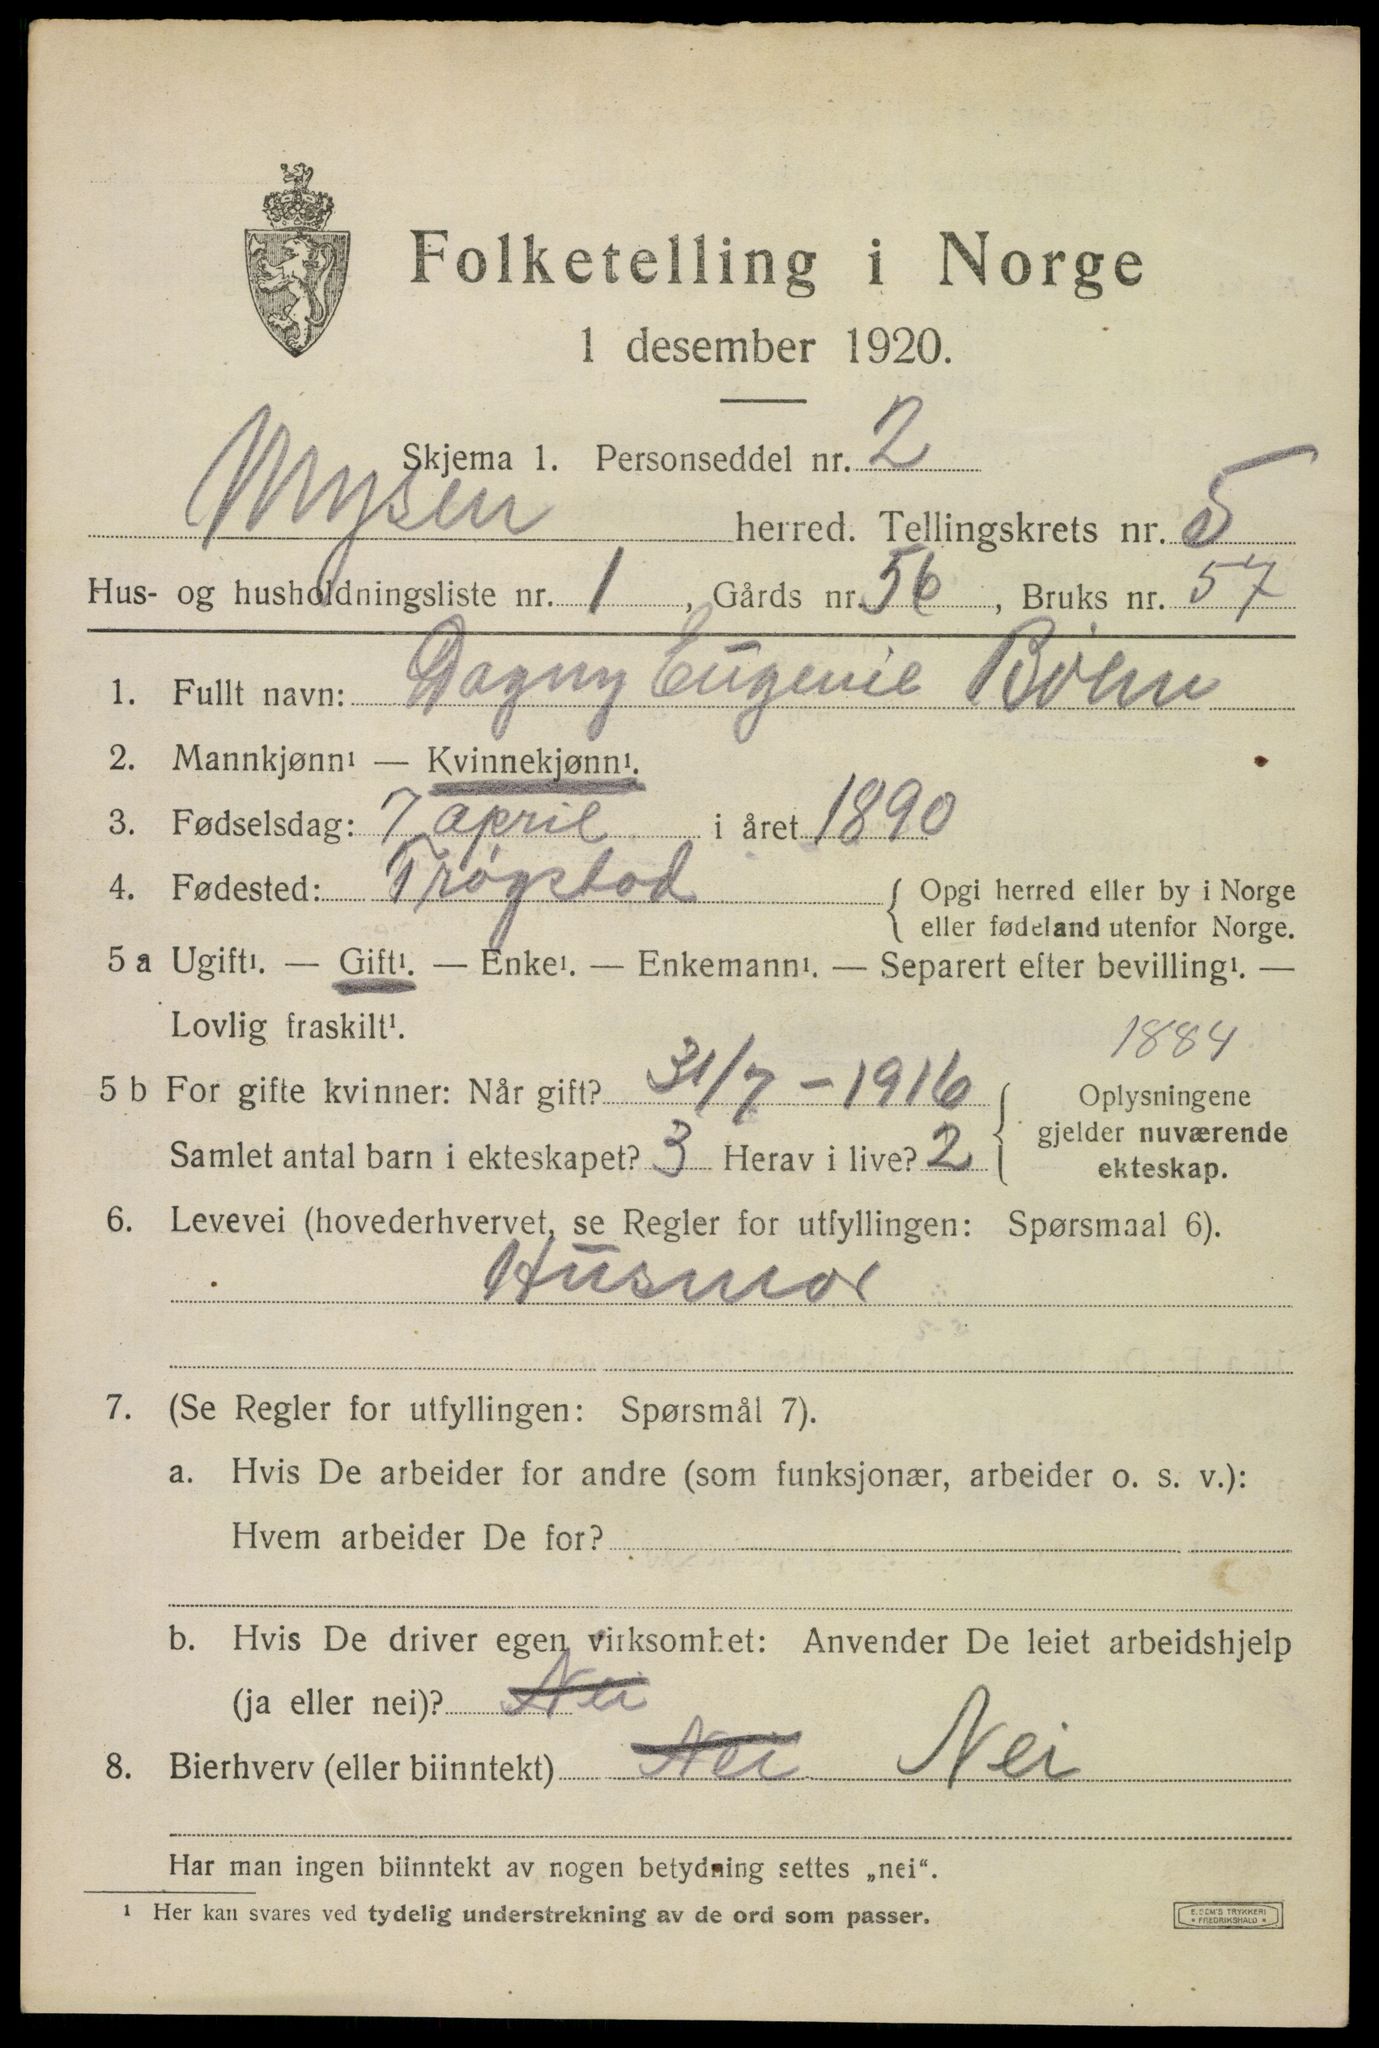 Folketelling i Norge
1 desember 1920.
Skjema 1. Personseddel nr. 2
Mysen herred. Tellingskrets nr. 5
Hus- og husholdningsliste nr. 1, Gårds nr. 56, Bruks nr. 57
1. Fullt navn: Dagny Eugenie Böhn
2. Mannkjønn¹ — Kvinnekjønn¹.
3. Fødselsdag: 7 april i året 1890
4. Fødested: Trøgstad { Opgi herred eller by i Norge
eller fødeland utenfor Norge.
5 a Ugift¹. — Gift¹. — Enke¹. — Enkemann¹. — Separert efter bevilling¹. —
Lovlig fraskilt¹.
1884
5 b For gifte kvinner: Når gift? 31/7 - 1916
Samlet antal barn i ekteskapet? 3 Herav i live? 2
{ Oplysningene
gjelder nuværende
ekteskap.
6. Levevei (hovederhvervet, se Regler for utfyllingen: Spørsmaal 6).
Husmor
7. (Se Regler for utfyllingen: Spørsmål 7).
a. Hvis De arbeider for andre (som funksjonær, arbeider o. s. v.):
Hvem arbeider De for?
b. Hvis De driver egen virksomhet: Anvender De leiet arbeidshjelp
(ja eller nei)? Nei
8. Bierhverv (eller biinntekt) Nei Nei
Har man ingen biinntekt av nogen betydning settes „nei“.
¹ Her kan svares ved tydelig understrekning av de ord som passer.
E. SEM'S TRYKKERI
* FREDRIKSHALD *